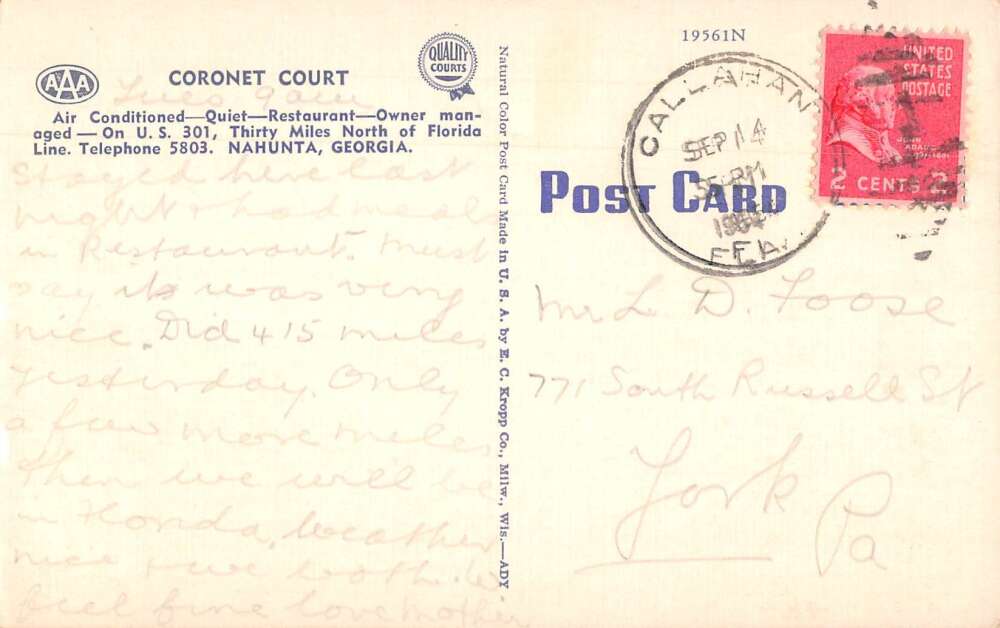 AAA
CORONET COURT
QUALITY
COURTS
Tues 9 am
Air Conditioned—Quiet—Restaurant—Owner man-
aged — On U. S. 301, Thirty Miles North of Florida
Line. Telephone 5803. NAHUNTA, GEORGIA.
Stayed here last
night + had meals
in Restaurant. Must
say it was very
nice. Did 415 miles
yesterday. Only
a few more miles
then we will be
in Florida, Weather
nice + we both
feel fine love Mother
Natural Color Post Card Made in U. S. A. by E. C. Kropp Co., Milw., Wis.—ADY
19561N
POST CARD
CALLAHAN
SEP 14
PM
FLA.
UNITED
STATES
POSTAGE
JOHN
ADAMS
2 CENTS 2
Mr L. D. Foose
771 South Russell St
York
Pa